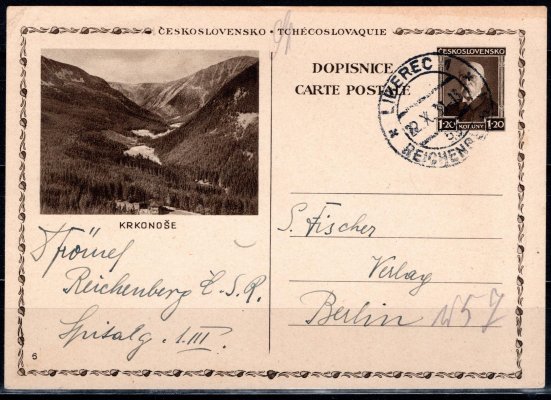 ČESKOSLOVENSKO • TCHÉCOSLOVAQUIE
DOPISNICE
CARTE POSTALE
ČESKOSLOVENSKO
1·20 KORUNY 1·20
LIBEREC 1
REICHENB
KRKONOŠE
Reichenberg Č.S.R.
Spitalg. 1.III.
S. Fischer
Verlag
Berlin W 57
6